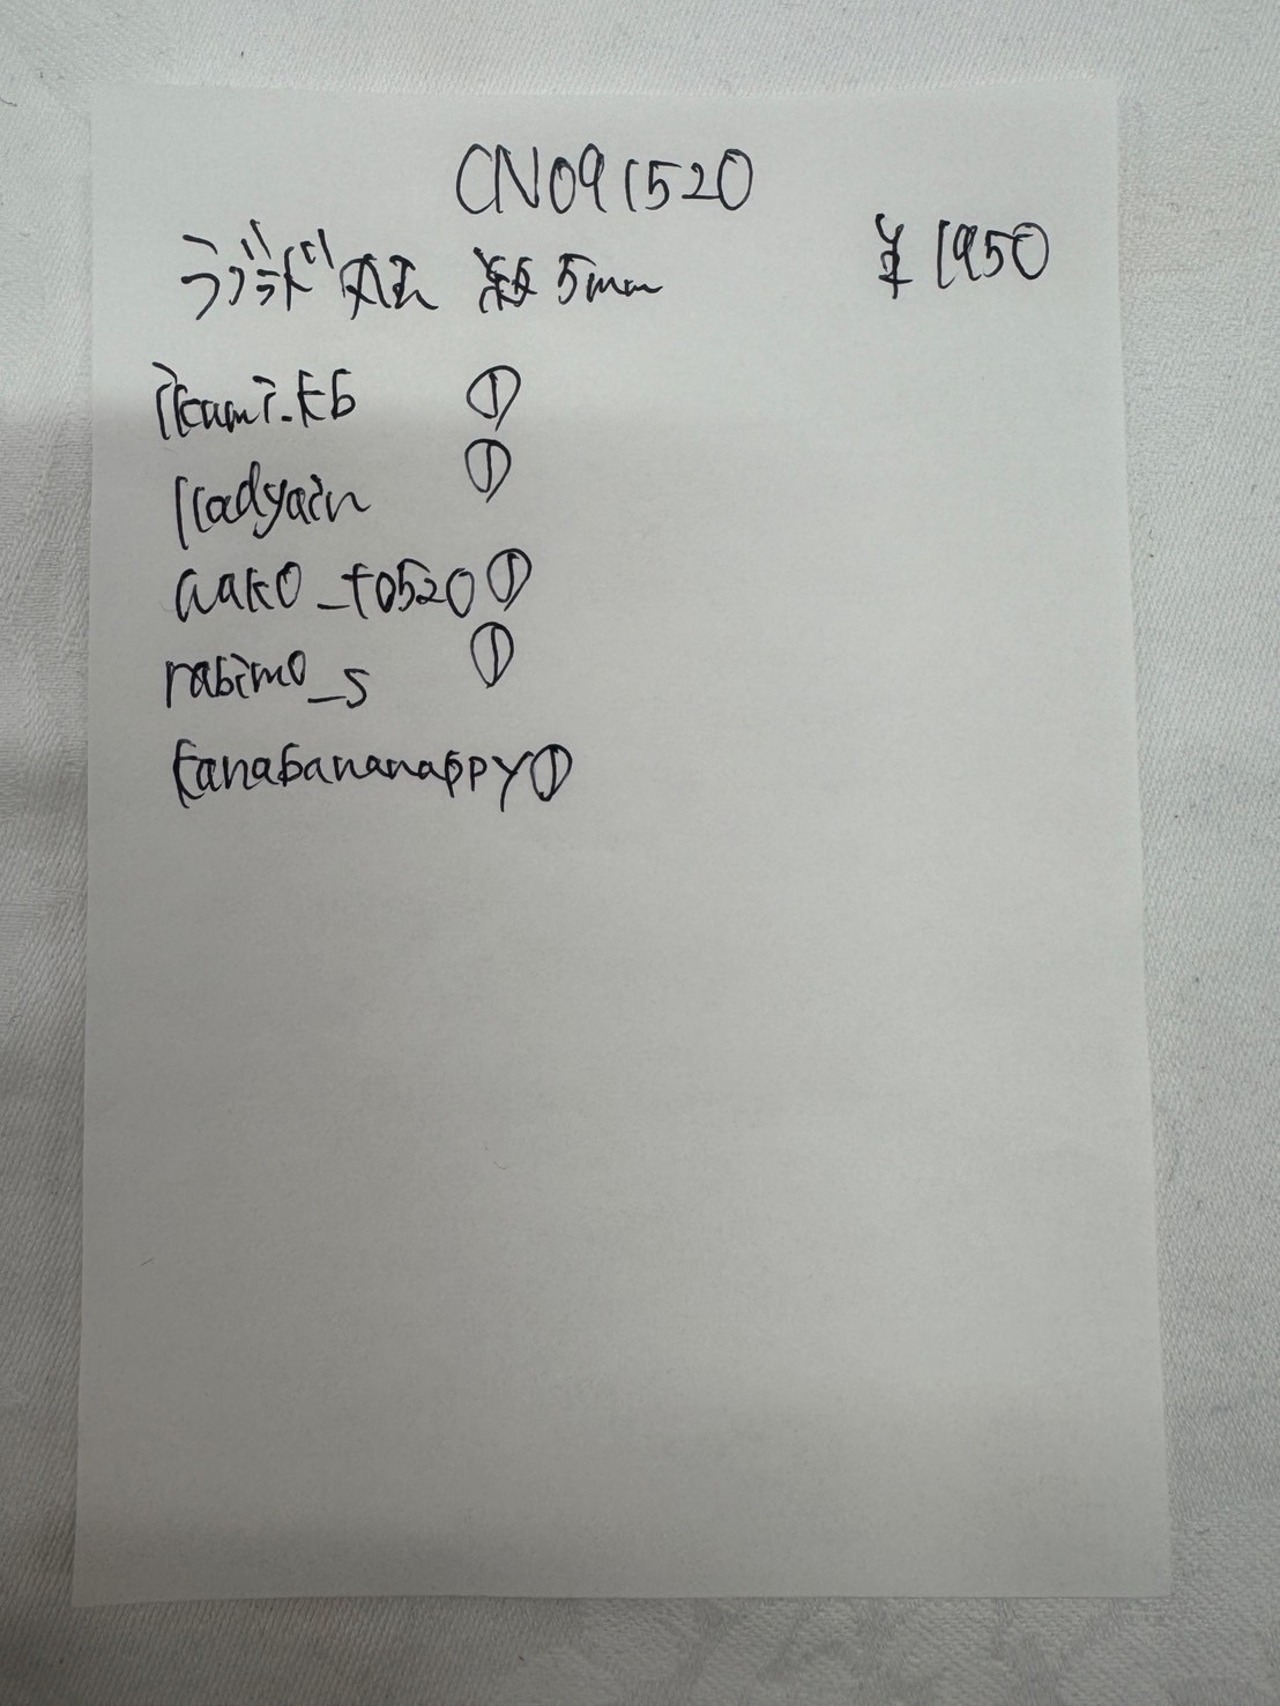 CN091520
ラブラド 丸玉 約5mm ¥1950
ikami.kb ①
lladyain ①
aako_to520 ①
rabimo_s ①
kanabananappy ①